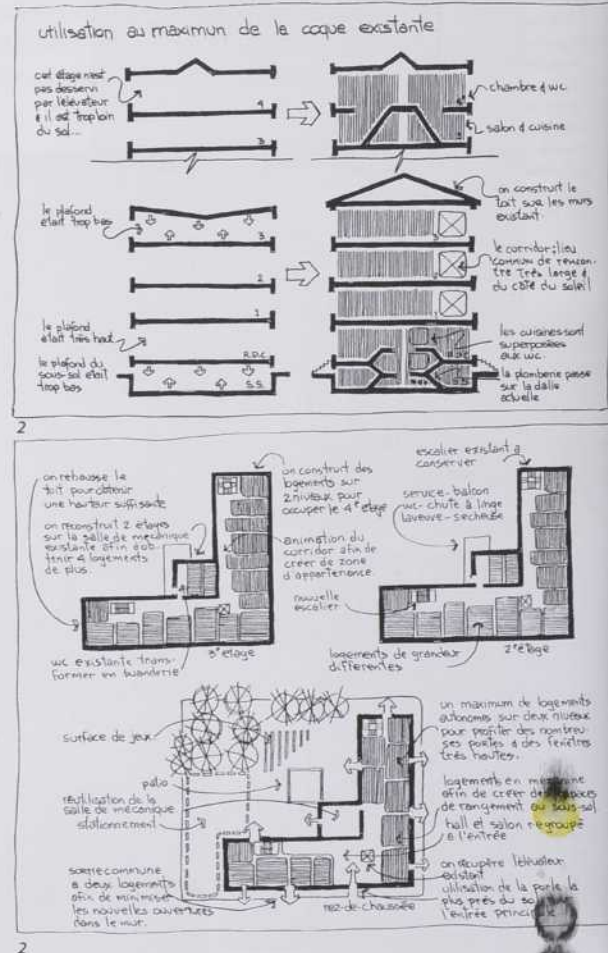 utilisation au maximun de la coque existante
cet étage n'est
pas desservi
par l'élévateur
& il est trop loin
du sol...
4
3
chambre & wc
4
3
salon & cuisine
le plafond
était trop bas
3
2
1
le plafond
était très haut
R.D.C.
le plafond du
sous-sol était
trop bas
S.S.
on construit le
toit sur les murs
existant.
3
2
1
le corridor; lieu
commun de rencon-
tre très large &
du côté du soleil
les cuisines sont
superposées
aux wc.
la plomberie passe
sur la dalle
actuelle
R.D.C.
S.S.
2
on rehausse le
toit pour obtenir
une hauteur suffisante
on reconstruit 2 étages
sur la salle de mécanique
existante afin d'ob-
tenir 4 logements
de plus.
wc existante trans-
former en buanderie
3e étage
on construit des
logements sur
2 niveaux pour
occuper le 4e étage
animation du
corridor afin de
creer de zone
d'appartenance
escalier existant à
conserver
service-balcon
wc-chute à linge
laveuse-secheuse
nouvelle
escalier
logements de grandeur
differentes
2e étage
surface de jeux
patio
réutilisation de la
salle de mécanique
stationnement
sortie commune
a deux logements
afin de minimiser
les nouvelles ouvertures
dans le mur.
rez-de-chaussée
un maximum de logements
autonomes sur deux niveaux
pour profiter des nombreu-
ses portes & des fenêtres
très hautes.
logements en mezzanine
afin de creer des espaces
de rangement au sous-sol
hall et salon regroupé
a l'entrée
on récupère l'élévateur
existant
utilisation de la porte la
plus près du sol
l'entrée principale
2